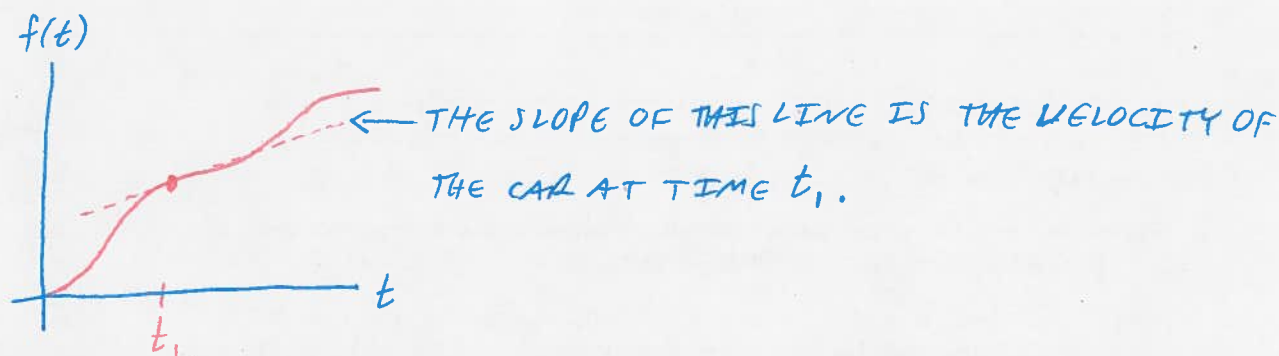 f(t)
THE SLOPE OF THIS LINE IS THE VELOCITY OF
THE CAR AT TIME t₁.
t
t₁